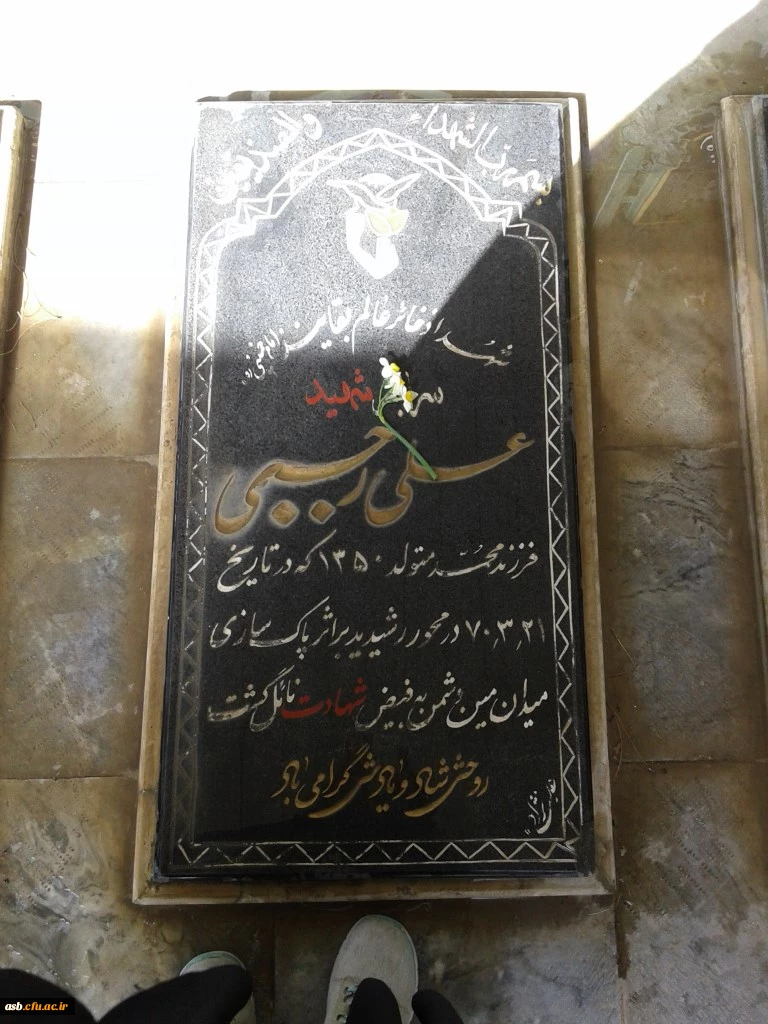 بسم رب الشهداء و الصدیقین
شهدا ذخائر عالم بقایند (امام خمینی ره)
سرباز شهید
علی رجبی
فرزند محمد متولد ۱۳۵۰ که در تاریخ
۷۰٫۳٫۲۱ در محور رشیدیه براثر پاک سازی
میدان مین دشمن به فیض شهادت نائل گشت
روحش شاد و یادش گرامی باد
asb.cfu.ac.ir